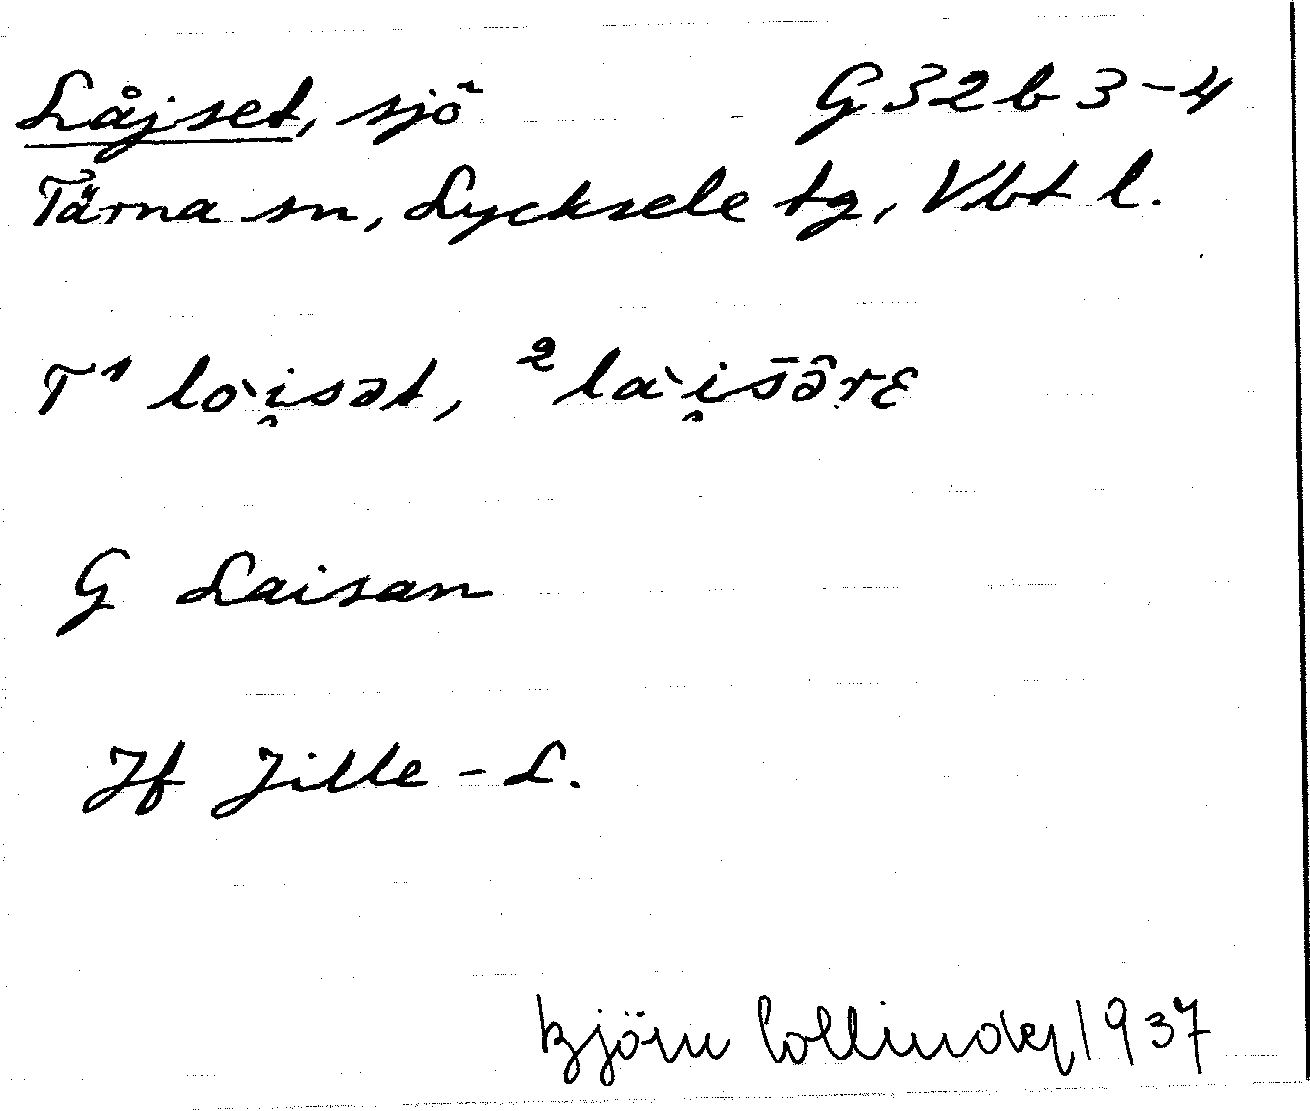 Låjset, sjö G 32 b 3-4
Tärna sn, Lycksele tg, Vbt l.
T ¹ lo`i̯sət, ² la`i̯s̄ə̂rɛ
G Laisan
Jf Jille-L.
Björn Collinder 1937